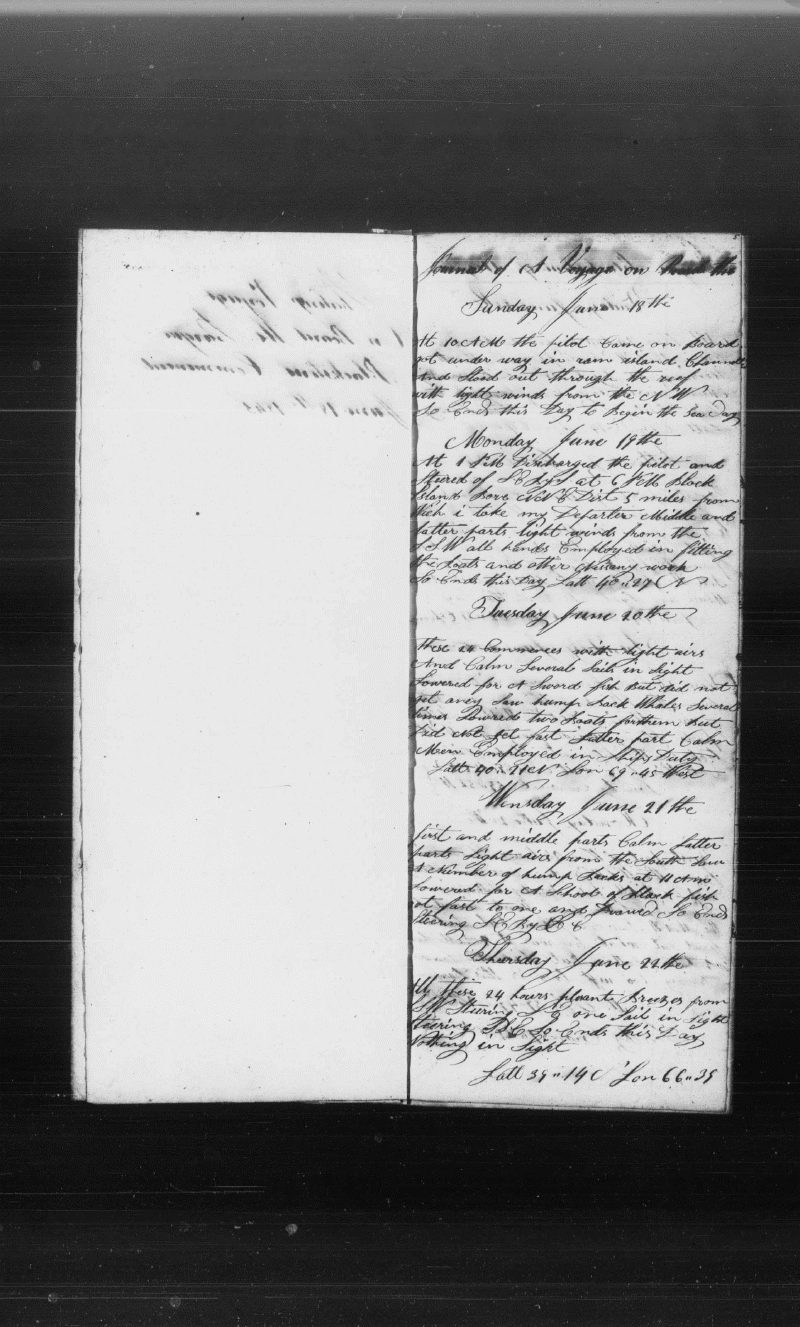 Journal of A Voyage on Board the
Sunday June 18th
At 10 AM the pilot Came on board
got under way in ram island Channel
And Stood out through the reef
with light winds from the NW
So Ends this Day to Begin the Sea Day
Monday June 19the
At 1 PM Discharged the pilot and
Steered of at 6 PM Block
Island Bore Dist 5 miles from
Which i take my Departer Middle and
latter parts light winds from the
SSW all hands Employed in fitting
the boats and other work
So Ends this Day Latt 40 " 27 N
Tuesday June 20the
these 24 Commences with light airs
And Calm Several Sails in Sight
Lowered for A Sword fish But did not
get aney Saw hump Back Whales Several
times Lowered two boats for them But
Did Not get fast Latter part Calm
Men Employed in Ships Duty
Latt 40 " 21 N Lon 69 " 45 West
Wensday June 21the
first and middle parts Calm Latter
parts Light airs from the South Saw
A Number of hump Backs at 11 AM
Lowered for A School of Black fish
got fast to one and So Ends
Steering
Thursday June 22the
All these 24 hours pleasant Breezes from
SW Steering one Sail in Sight
Steering So Ends this Day
Nothing in Sight
Latt 39 " 14 Lon 66 " 35